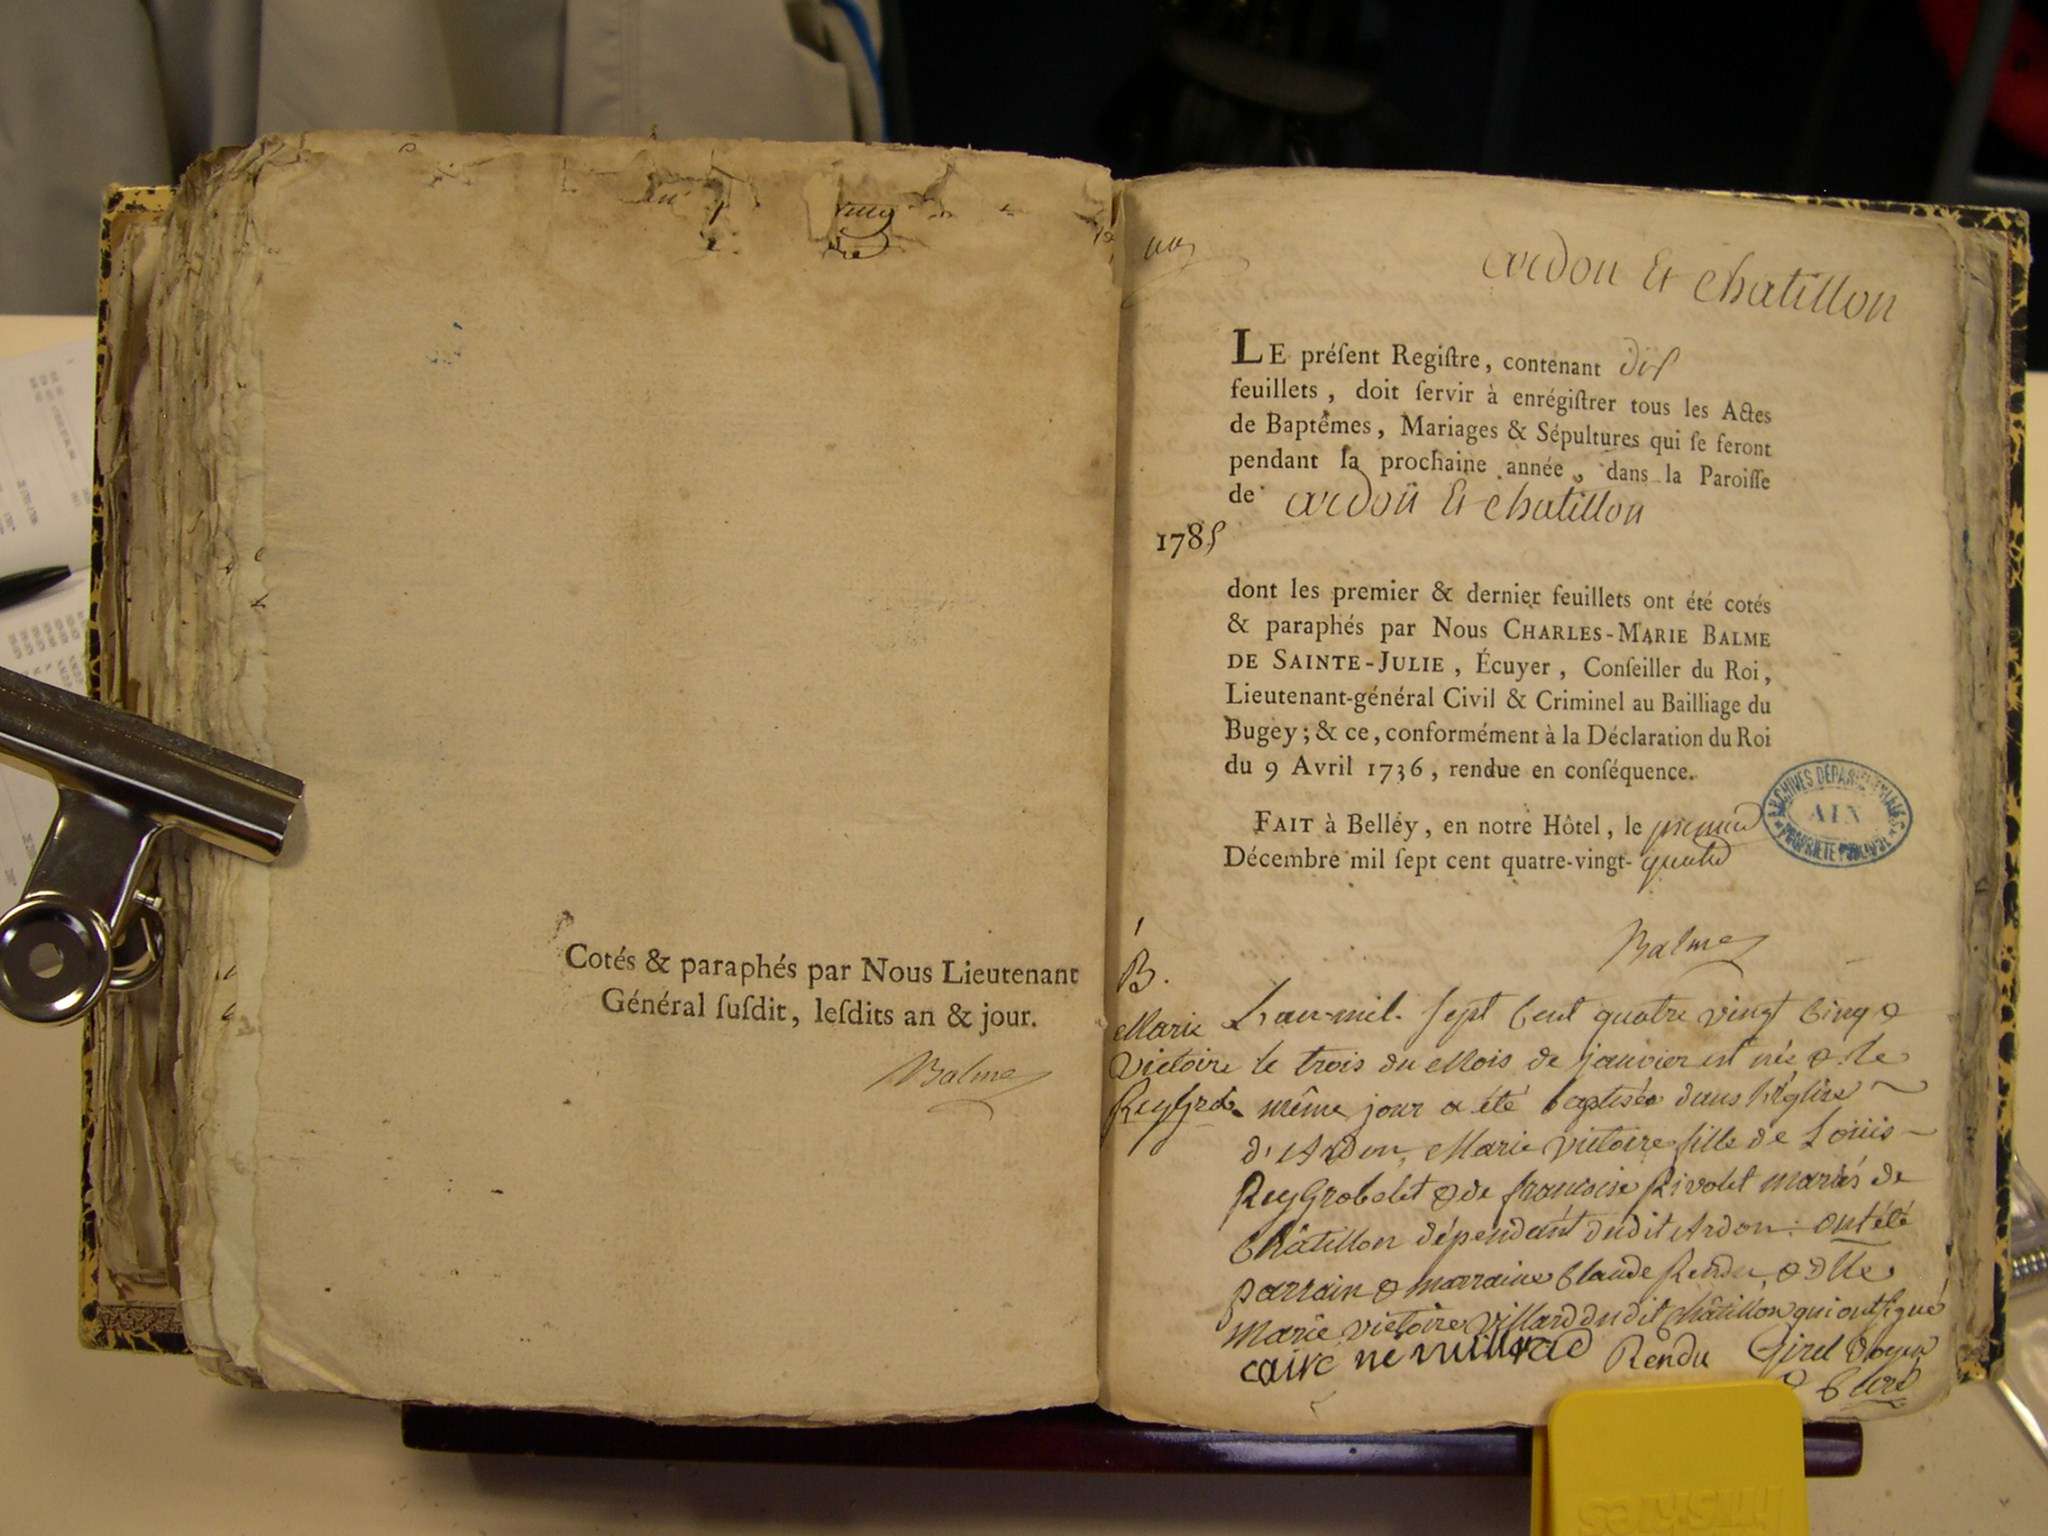 Cotés & paraphés par Nous Lieutenant
Général ſuſdit, leſdits an & jour.
Balme
ardon Et chatillon
LE préſent Regiſtre, contenant dix
feuillets, doit ſervir à enrégiſtrer tous les Actes
de Baptêmes, Mariages & Sépultures qui ſe feront
pendant la prochaine année, dans la Paroiſſe
de ardon Et chatillon
1785
dont les premier & dernier feuillets ont été cotés
& paraphés par Nous CHARLES-MARIE BALME
DE SAINTE-JULIE, Écuyer, Conſeiller du Roi,
Lieutenant-général Civil & Criminel au Bailliage du
Bugey; & ce, conformément à la Déclaration du Roi
du 9 Avril 1736, rendue en conſéquence.
ARCHIVES DÉPARTEMENTALES
AIN
PROPRIÉTÉ PUBLIQUE
FAIT à Belléy, en notre Hôtel, le premier
Décembre mil ſept cent quatre-vingt-quatre
Balme
1
B.
Marie
Victoire
ReyGrob.
L'an mil sept Cent quatre vingt Cinq &
le trois du Mois de janvier est née & le
même jour a été baptisée dans l'église
d'Ardon, Marie Victoire fille de Loüis
ReyGrobelet & de françoise Rivolet mariés de
Châtillon dépendant dudit Ardon: ont été
parrain & marraine Claude Rendu, & dlle
Marie victoire villard dudit châtillon qui ont signé
Rendu Girel doyen
& Curé